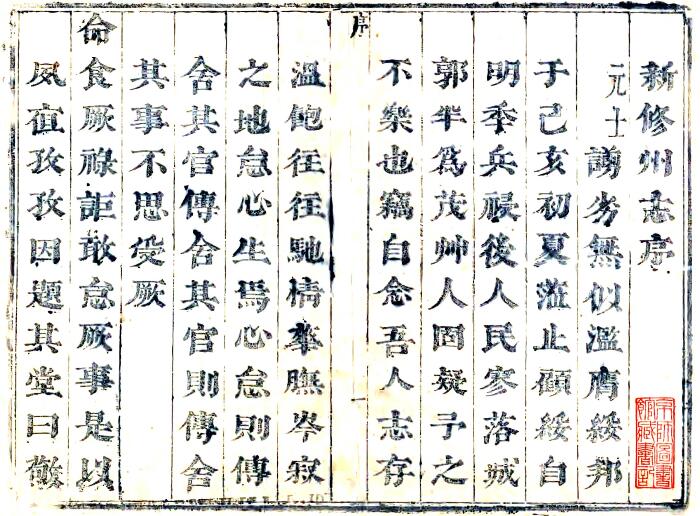 新修州志序
元士謭劣無似濫膺綏邦
于己亥初夏蒞止顧綏自
明季兵祲後人民寥落城
郭半爲茂艸人固疑予之
不樂也竊自念吾人志存
序
溫飽往往馳情華膴岑寂
之地怠心生焉心怠則傳
舍其官傳舍其官則傳舍
其事不思受厥
命食厥祿詎敢怠厥事是以
夙宵孜孜因題其堂曰敬
京師圖書
館藏書記